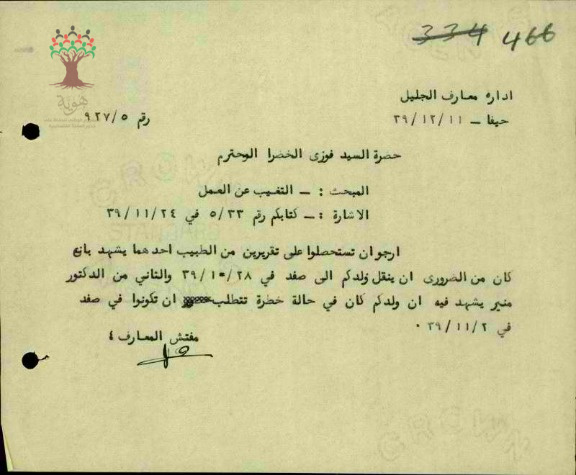 334 466
هوية
ادارة معارف الجليل
حيفا – ٣٩/١٢/١١
رقم ٩٢٧/٥
حضرة السيد فوزى الخضرا المحترم
المبحث : – التغيب عن العمل
الاشارة :– كتابكم رقم ٥/٣٣ في ٣٩/١١/٢٤
ارجو ان تستحصلوا على تقريرين من الطبيب احدهما يشهد بانع
كان من الضرورى ان ينقل ولدكم الى صفد في ٣٩/١٠/٢٨ والثاني من الدكتور
منير يشهد فيه ان ولدكم كان في حالة خطرة تتطلب ان تكونوا في صفد
في ٣٩/١١/٢ ٠
مفتش المعارف ٤
CROWN